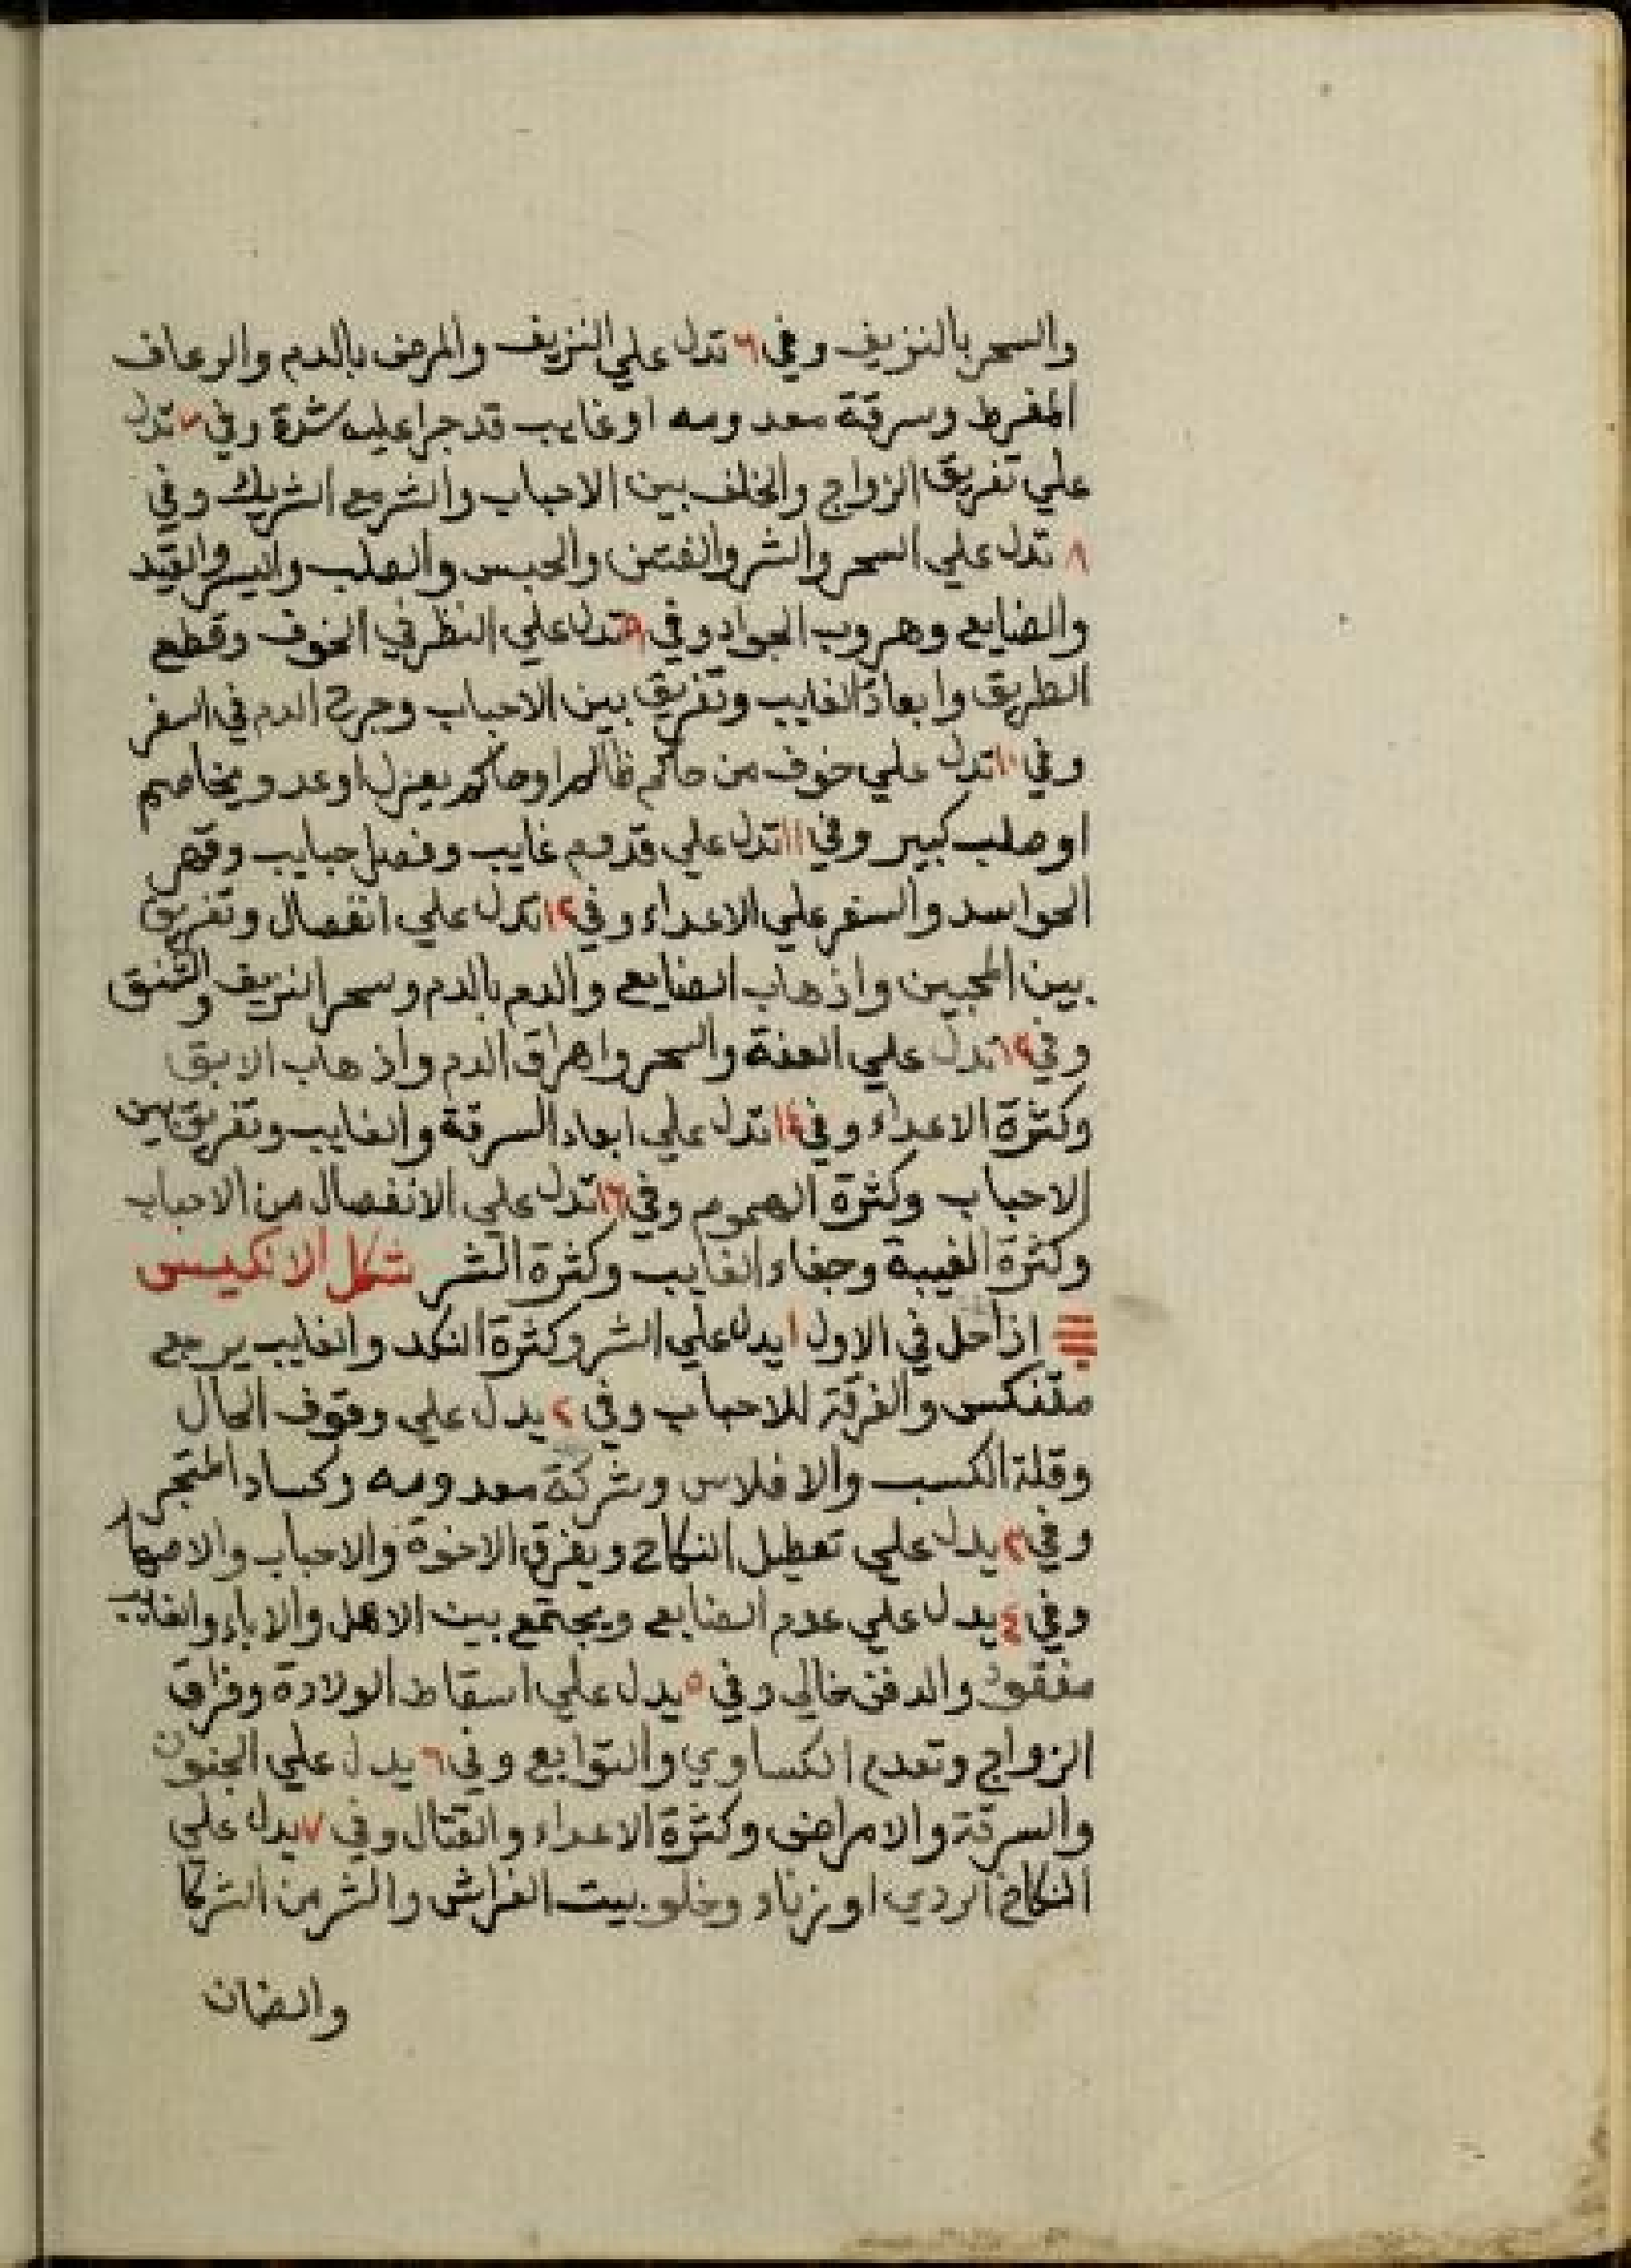 والسحر بالنزيف وفي ٦ تدل علي النزيف والمرض بالدم والرعاف
المفرط وسرقة معدومه او غايب قد جرا عليه شدة وفي ٧ تدل
علي تفريق الزواج والخلف بين الاحباب والشر مع الشريك وفي
٨ تدل علي السحر والشر والفتن والحبس والصلب واليسر والقيد
والضايع وهروب الجواد وفي ٩ تدل علي النظر في الخوف وقطع
الطريق وابعاد الغايب وتفريق بين الاحباب وجرح الدم في السفر
وفي ١٠ تدل علي خوف من حاكم ظالم او حاكم يعزل او عدو يخاصم
او صلب كبير وفي ١١ تدل علي قدوم غايب وفصل حبايب وقهر
الحواسد والسفر علي الاعداء وفي ١٢ تدل علي انفصال وتفريق
بين المحبين واذهاب الضايع والدم بالدم وسحر النزيف والشنق
وفي ١٣ تدل علي العنة والسحر واهراق الدم واذهاب الابق
وكثرة الاعداء وفي ١٤ تدل علي ابعاد السرقة والغايب وتفريق بين
الاحباب وكثرة الهموم وفي ١٦ تدل علي الانفصال من الاحباب
وكثرة الغيبة وجفاء الغايب وكثرة الشر شكل الانكيس
اذا حل في الاول ١ يدل علي الشر وكثرة النكد والغايب يرجع
متنكس والفرقة للاحباب وفي ٢ يدل علي وقوف الحال
وقلة الكسب والافلاس وشركة معدومه وكساد المتجر
وفي ٣ يدل علي تعطيل النكاح ويفرق الاخوة والاحباب والاصهار
وفي ٤ يدل علي عدم الضايع ويجتمع بيت الاهل والاباء والغايب
مفقود والدفن خالي وفي ٥ يدل علي اسقاط الولادة وفراق
الزواج وتعدم الكساوي والتوابع وفي ٦ يدل علي الجنون
والسرقة والامراض وكثرة الاعداء والقتال وفي ٧ يدل علي
النكاح الردي او زناد وخلو بيت الفراش والشر من الشركا
والضمان